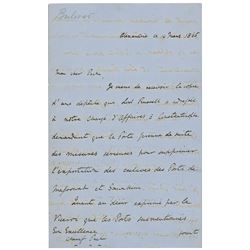 Bulwer
Alexandrie le 4 Mars 1865
Mon cher Pacha
Je viens de recevoir la copie
d'une dépêche que Lord Russell a adressée
à notre Chargé d'Affaires à Constantinople
demandant que la Porte prenne de suite
des mesures sérieuses pour supprimer
l'exportation des esclaves des Ports de
Massowah et Souakim
Quant au désir exprimé par le
Viceroi que les Ports mentionnés
Son Excellence